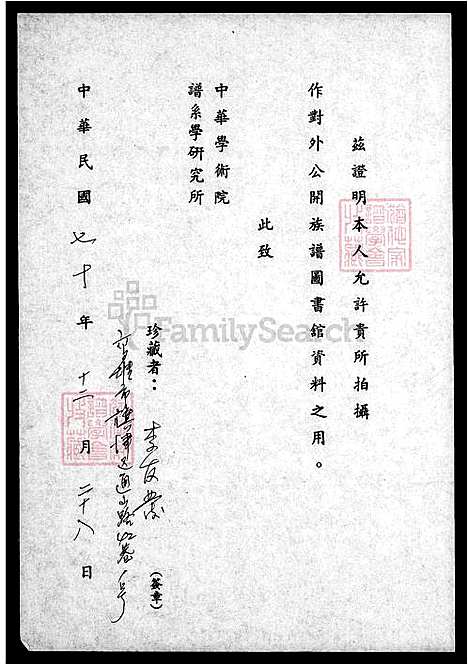 茲證明本人允許貴所拍攝
作對外公開族譜圖書館資料之用。
此致
中華學術院
譜系學研究所
珍藏者：李友 (簽章)
高雄市旗津區通山路 巷 號
中華民國七十年十二月二十八日
FamilySearch